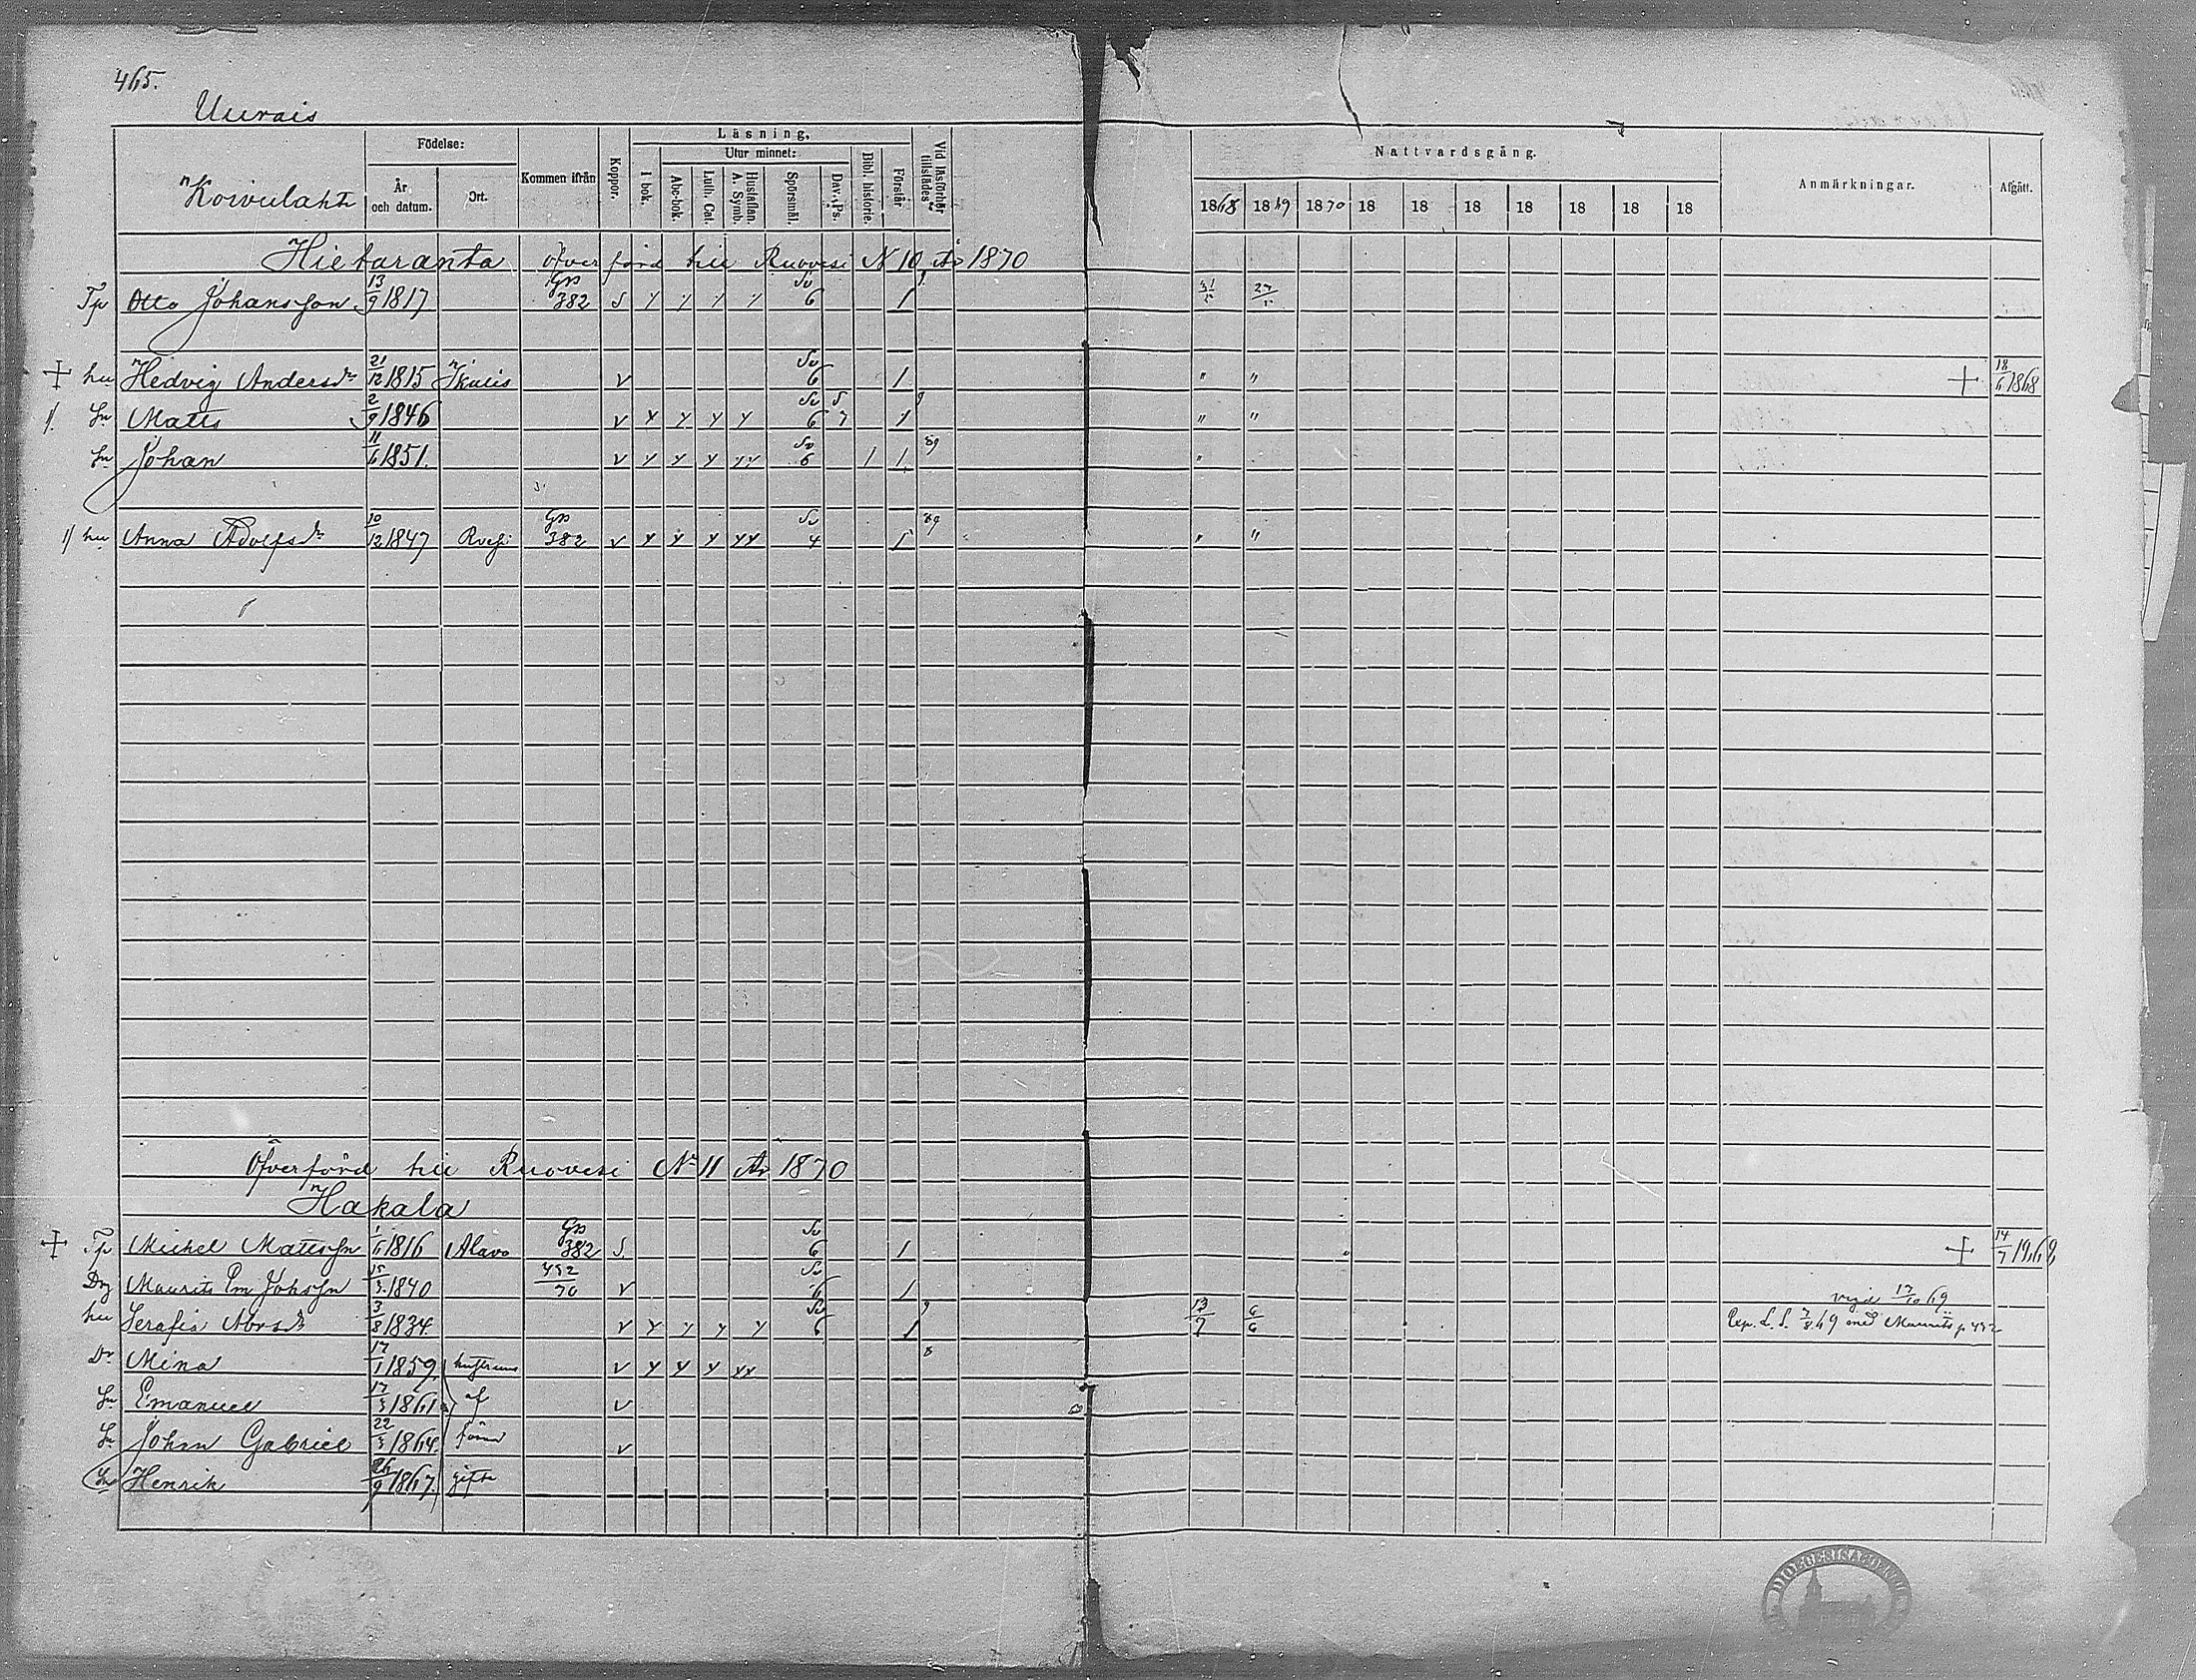 465.
Uurais
Koivulaht
Födelse:
År och datum.
Ort.
Kommen ifrån
Koppor.
Läsning.
I bok.
Utur minnet:
Abc-bok.
Luth. Cat.
Hustaflan. A. Symb.
Spörsmål.
Dav. Ps.
Bibl. historie.
Förstår
Vid läsförhör tillstädes
Nattvardsgång.
1868 1869 1870 18 18 18 18 18 18 18
Anmärkningar.
Afgått.
Hietaranta öfverförd till Ruovesi N 10 År 1870
Tp Otto Johansson 13/9 1817 Gb 382 S Sv 6 1 31/5 27/5
+ hu Hedvig Andersdr 21/12 1815 Ikalis v Sv 6 1 " " + 18/6 1868
Sn Matts 2/9 1846 v y y y y Sv 6 1 " "
Sn Johan 11/6 1851. v y y y yy Sv 6 1 1 89 "
hu Anna Adolfsdr 10/12 1847 Rvesi Gb 382 v y y y yy Sv 4 1 89 " "
Öfverförd till Ruovesi No 11 År 1870
Hakala
+ Tp Michel Mattsson 1/6 1816 Alavo Gb 382 S. Sv 6 1 + 14/7 1868
Dg Maurits Em Johsson 15/3 1840 452/70 v Sv 6 1 vigd 17/10 69
hu Serafia Abrsdr 3/8 1834. v y y y y Sv 6 1 9 13/7 6/6 Exp. L. S. 7/8 69 med Maurits p 452
Dr Mina 17/1 1859. hustruns v y y y yy 8
Sn Emanuel 17/3 1861 af v
Sn Johan Gabriel 22/3 1864. förra v
Sn Henrik 26/9 1867. gifte